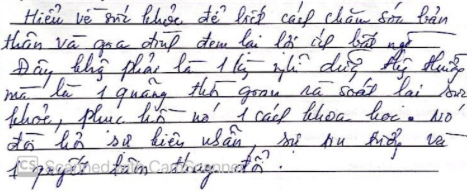 Hiểu về sức khỏe để biết cách chăm sóc bản
thân và gia đình đem lại lợi ích bất ngờ
Đây không phải là 1 kỳ nghỉ dưỡng thông thường
mà là 1 quãng thời gian rà soát lại sức
khỏe, phục hồi nó 1 cách khoa học. Nó
đòi hỏi sự kiên nhẫn, sự tin tưởng và
1 quyết tâm thay đổi.
CS Scanned with CamScanner